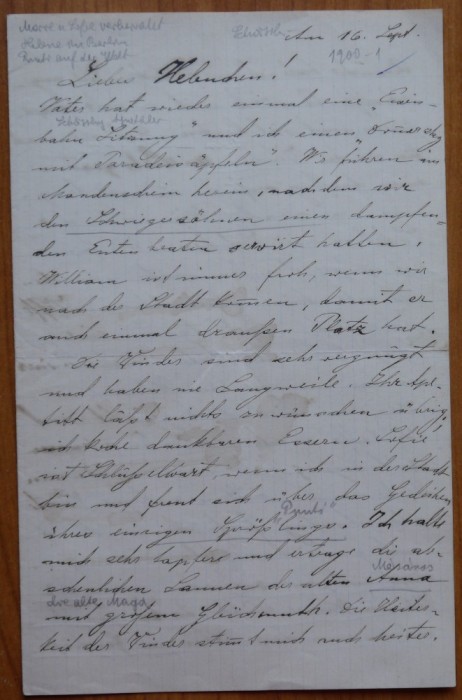 Am 16. Sept.
1900-1
Lieber Helenchen!
Vater hat wieder einmal eine „Eisen-
bahn Sitzung" und ich einen
mit Paradeisäpfeln". Wir führen im
Mondenschein herein, nachdem wir
den Schwiegersöhnen einen dampfen-
den Entenbraten serviert hatten.
William ist immer froh, wenn wir
nach der Stadt kommen, damit er
auch einmal draußen Platz hat.
Die Kinder sind sehr vergnügt
und haben nie Langweile. Ihr Ap-
tit läßt nichts zu wünschen übrig,
ich koche dankbaren Essern. Sofie
ist Schlüsselwart, wenn ich in der Stadt
bin und freut sich über das Gedeihen
ihres einzigen Sprößlings. Ich halte
mich sehr tapfer und ertrage die ab-
scheulichen Launen der alten Anna
die alte Maga
mit großem Gleichmuth. Die Heiter-
keit der Kinder stimmt mich auch heiter.